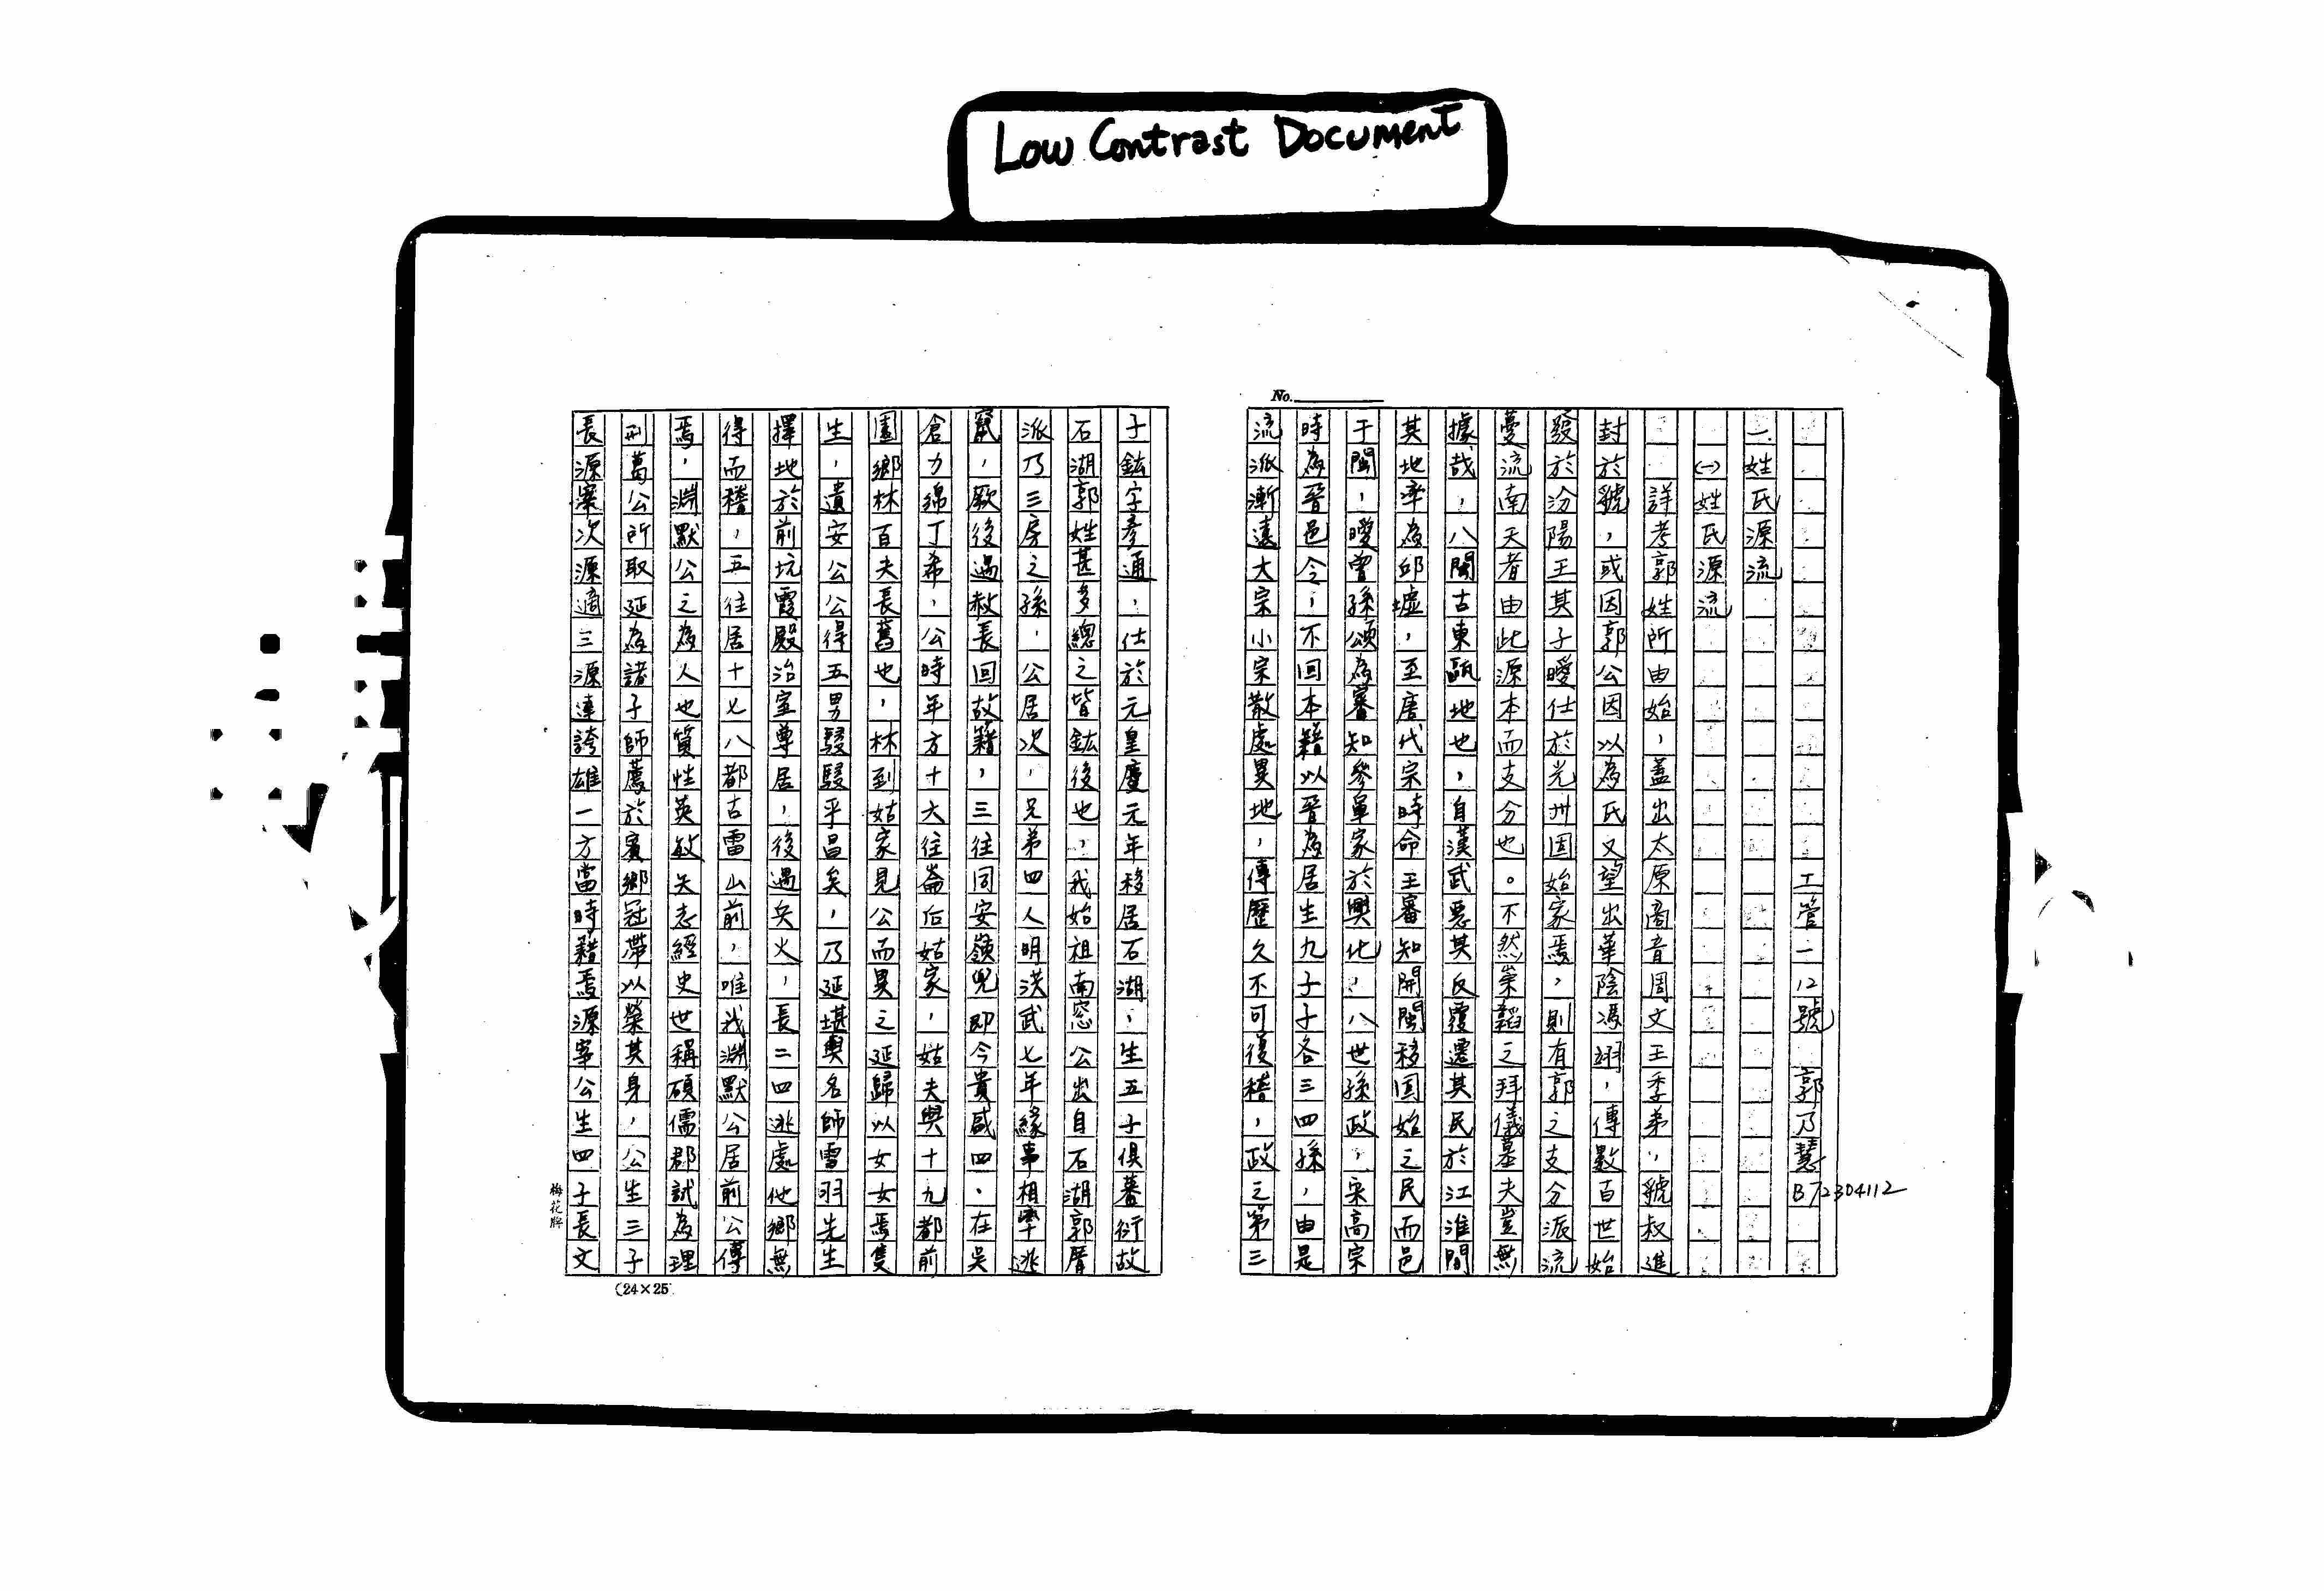 Low Contrast Document
No.
工管一 12號 郭乃慧 B72304112
一、姓氏源流
(一)姓氏源流
詳考郭姓所由始,蓋出太原商音周文王季弟,虢叔進
封於虢,或因郭公因以為氏又望出華陰馮翊,傳數百世始
發於汾陽王其子曖仕於光州固始家焉,則有郭之支分派流
蔓流南天者由此源本而支分也。不然崇韜之拜儀墓夫豈無
據哉,八閩古東甌地也,自漢武惡其反覆遷其民於江淮間
其地率為邱墟,至唐代宗時命王審知開閩移固始之民而邑
于閩,曖曾孫頌為審知參軍家於興化,八世孫政,宋高宗
時為晉邑令,不回本籍以晉為居生九子子各三四孫,由是
流派漸遠大宗小宗散處異地,傳歷久不可復稽,政之第三
子鈜字彥通,仕於元皇慶元年移居石湖,生五子俱蕃衍故
石湖郭姓甚多總之皆鈜後也,我始祖南窓公出自石湖郭厝
派乃三房之孫,公居次,兄弟四人明洪武七年緣事相率逃
竄,厥後遇赦長回故籍,三往同安嶺兜即今貴咸四,在吳
倉力綿丁希,公時年方十大往崙后姑家,姑夫與十九都前
園鄉林百夫長舊也,林到姑家見公而異之延歸以女女焉隻
生,遺安公公得五男駸駸乎昌矣,乃延堪輿名師雪羽先生
擇地於前坑霞殿治室尊居,後遇兵火,長二四逃處他鄉無
得而稽,五往居十七八都古雷山前,唯我淵默公居前公傳
焉,淵默公之為人也質性英敏矢志經史世稱碩儒郡試為理
刑葛公所取延為諸子師薦於賓鄉冠帶以榮其身,公生三子
長源寀次源適三源達誇雄一方當時籍焉源寀公生四子長文
梅花牌
(24×25